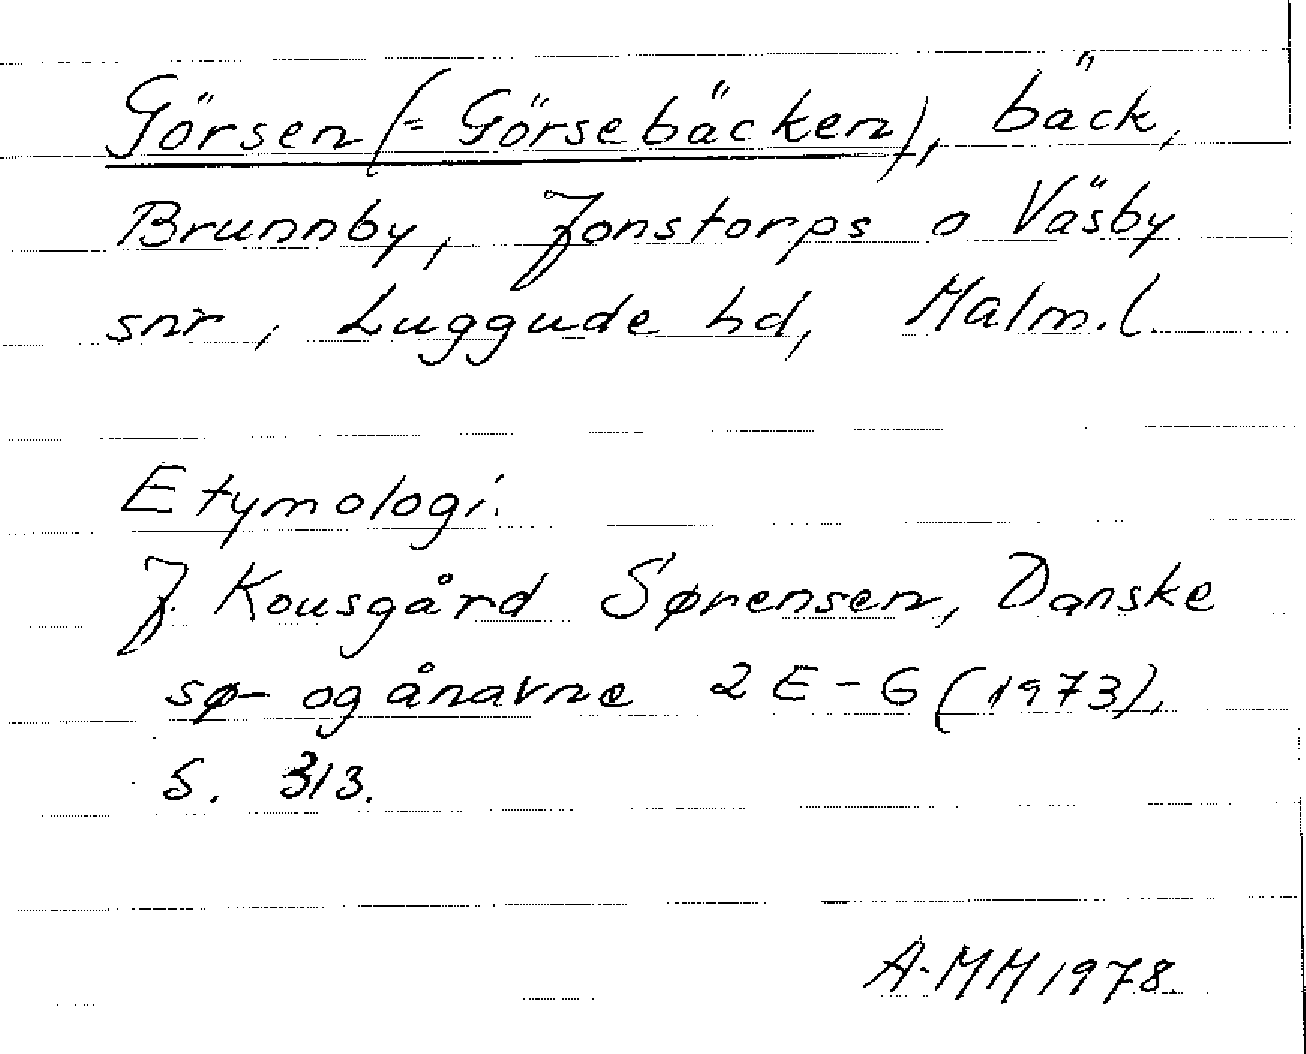 Görsen (= Görsebäcken), bäck,
Brunnby, Jonstorps o Väsby
snr, Luggude hd, Malm.l.
Etymologi.
J. Kousgård Sørensen, Danske
sø- og ånavne 2 E-G (1973),
S. 313.
A-MM 1978.